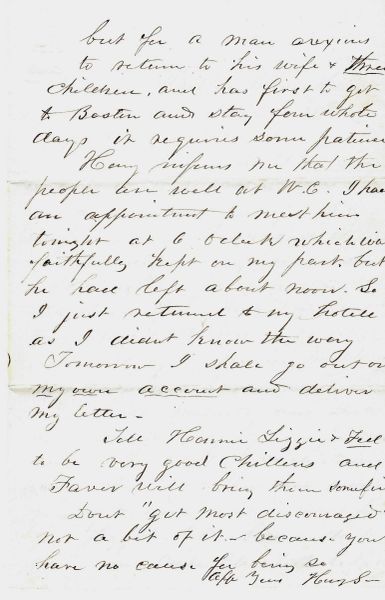 but for a man anxious
to return to his wife & three
children, and has first to get
to Boston and stay four whole
days it requires some patience
Harry informs me that the
people are well at W.C. I had
an appointment to meet him
tonight at 6 Oclock which was
faithfully kept on my part, but
he had left about noon. So
I just returned to my hotell
as I didnt know the way
Tomorrow I shall go out on
my own account and deliver
my letter -
Tell Hannie Lizzie & Fred
to be very good Chillens and
Faver will bring them
Dont "get most discouraged"
not a bit of it - because you
have no cause for being so
Aff Yours